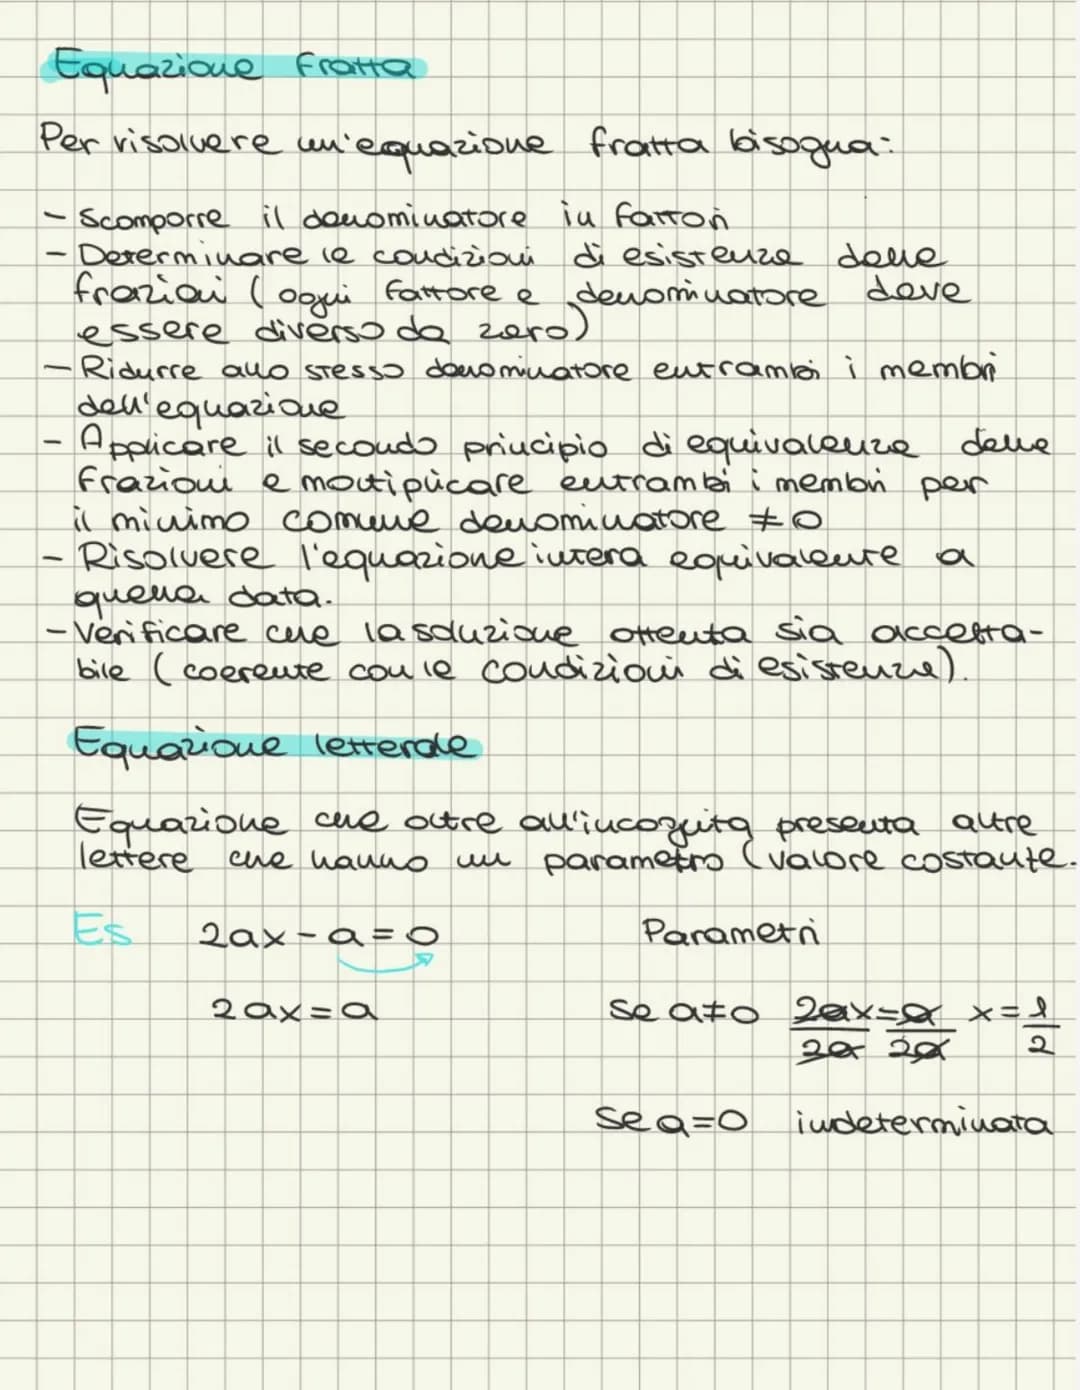 Equazione fratta
Per risolvere un'equazione fratta bisogna:
- Scomporre il denominatore in fattori
- Determinare le condizioni di esistenza delle
frazioni (ogni fattore e denominatore deve
essere diverso da zero)
- Ridurre allo stesso denominatore entrambi i membri
dell'equazione
- Applicare il secondo principio di equivalenza delle
frazioni e moltiplicare entrambi i membri per
il minimo comune denominatore ≠ 0
- Risolvere l'equazione intera equivalente a
quella data.
- Verificare che la soluzione ottenuta sia accetta-
bile (coerente con le condizioni di esistenza).
Equazione letterale
Equazione che oltre all'incognita presenta altre
lettere che hanno un parametro (valore costante.
Es 2ax-a=0 Parametri
2ax=a se a≠0 2ax/2a = a/2a x=1/2
se a=0 indeterminata